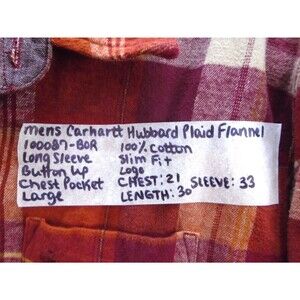 mens Carhartt Hubbard Plaid Flannel
100087-BOR 100% Cotton
Long Sleeve Slim Fit
Button Up Logo
Chest Pocket CHEST: 21 SLEEVE: 33
Large LENGTH: 30